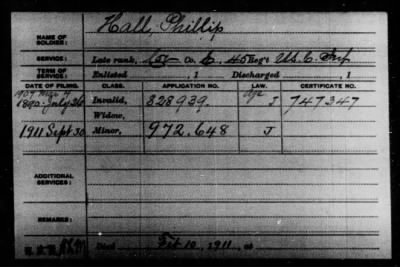 Hall, Phillip
NAME OF SOLDIER:
SERVICE: Late rank, Co. C, 40 Reg't U.S.C. Inf
TERM OF SERVICE: Enlisted , 1 Discharged , 1
DATE OF FILING. CLASS. APPLICATION NO. LAW. CERTIFICATE NO.
1907 Mar 4 Age
1890 July 26 Invalid, 828939. J 747347
Widow,
1911 Sept 30 Minor, 972.648 J
ADDITIONAL SERVICES:
REMARKS:
Died Feb 10, 1911, at